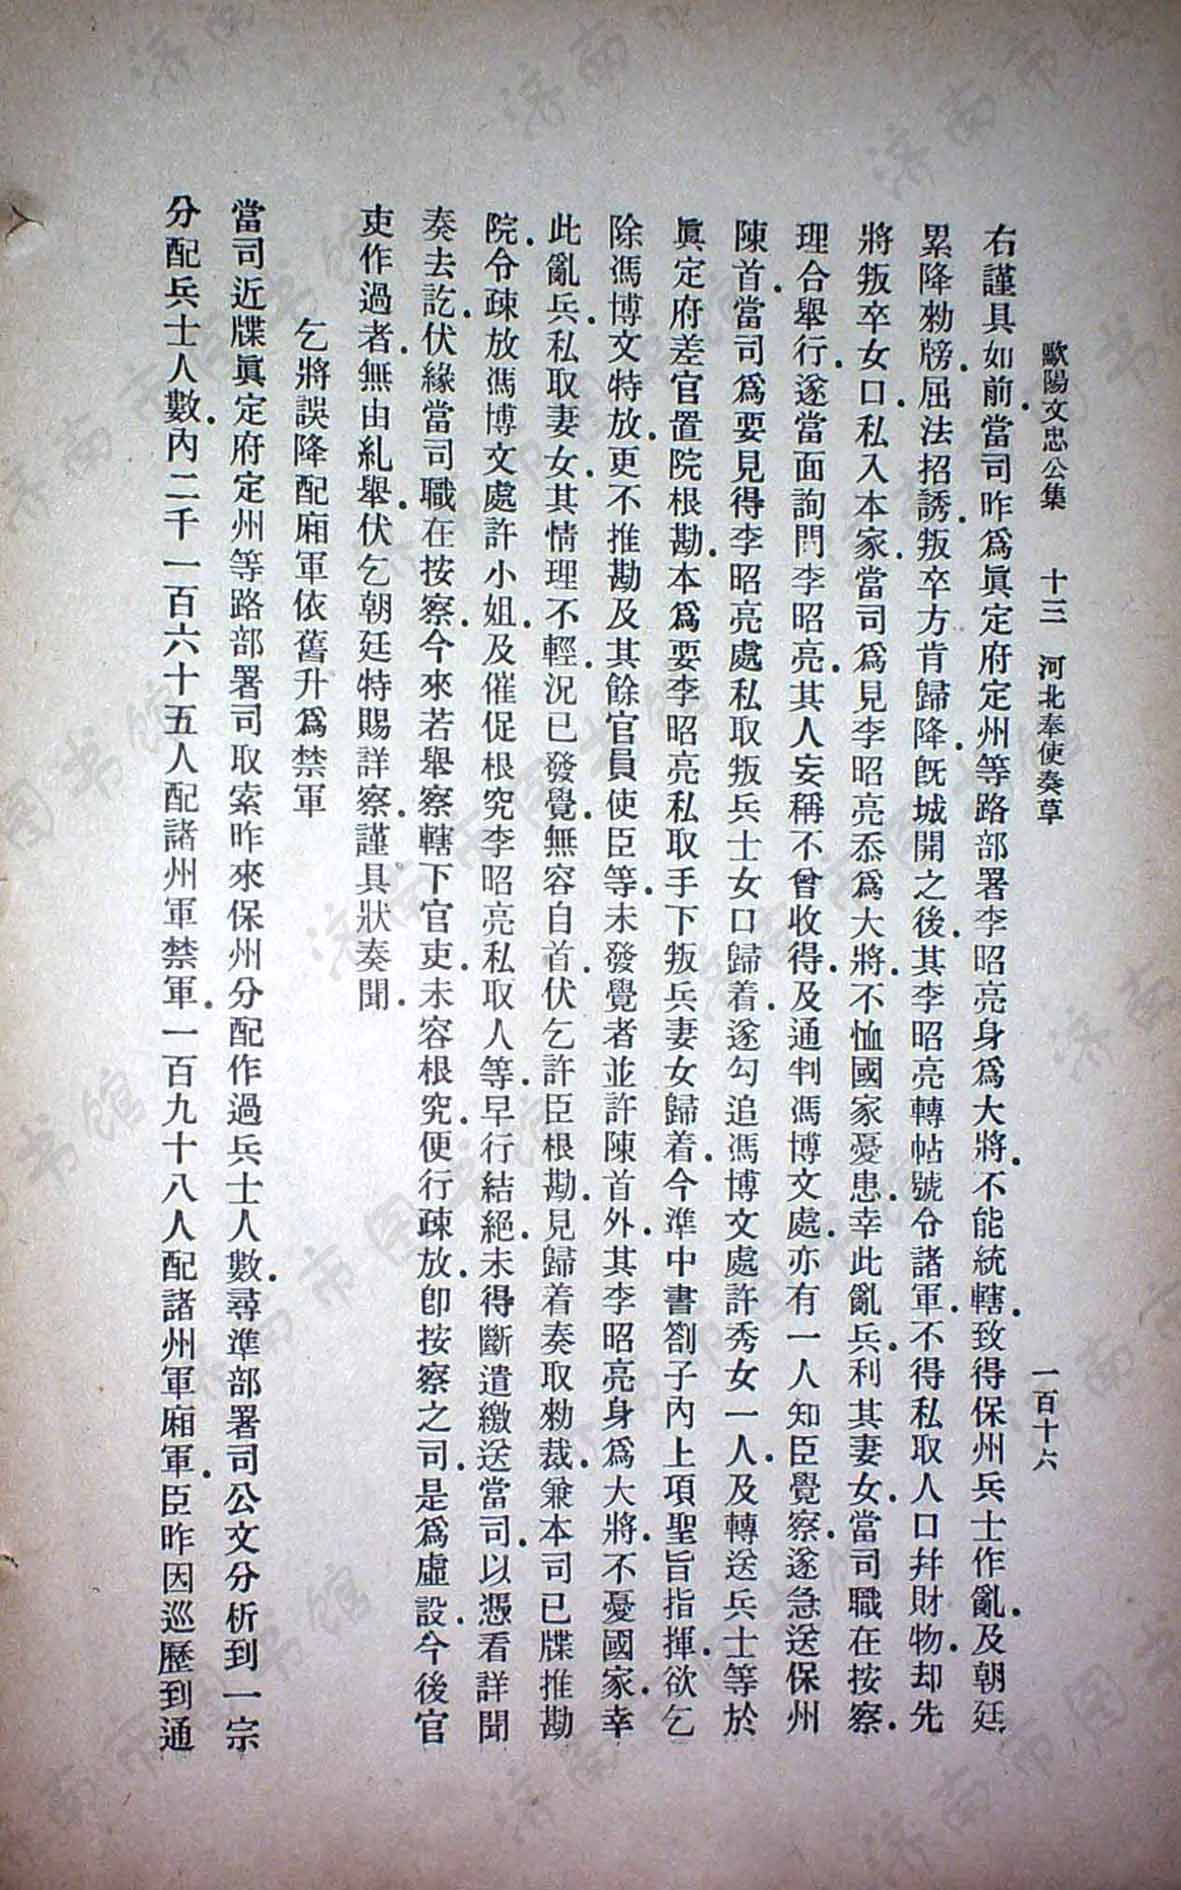 歐陽文忠公集 十三 河北奉使奏草 一百十六
右謹具如前.當司昨爲眞定府定州等路部署李昭亮身爲大將.不能統轄.致得保州兵士作亂.及朝廷
累降勑牓.屈法招誘.叛卒方肯歸降.旣城開之後.其李昭亮轉帖號令諸軍.不得私取人口幷財物.却先
將叛卒女口.私入本家.當司爲見李昭亮忝爲大將.不恤國家憂患.幸此亂兵.利其妻女.當司職在按察.
理合舉行.遂當面詢問李昭亮.其人妄稱不曾收得.及通判馮博文處.亦有一人知臣覺察.遂急送保州
陳首.當司爲要見得李昭亮處私取叛兵士女口歸着.遂勾追馮博文處許秀女一人.及轉送兵士等於
眞定府差官置院根勘.本爲要李昭亮私取手下叛兵妻女歸着.今準中書劄子內上項聖旨指揮.欲乞
除馮博文特放.更不推勘.及其餘官員使臣等.未發覺者並許陳首外.其李昭亮身爲大將.不憂國家.幸
此亂兵.私取妻女.其情理不輕.況已發覺.無容自首.伏乞許臣根勘.見歸着奏取勑裁.兼本司已牒推勘
院.令疎放馮博文處許小姐.及催促根究李昭亮私取人等.早行結絕.未得斷遣繳送當司.以憑看詳聞
奏去訖.伏緣當司職在按察.今來若舉察轄下官吏.未容根究.便行疎放.卽按察之司.是爲虛設.今後官
吏作過者.無由糺舉.伏乞朝廷特賜詳察.謹具狀奏聞.
乞將誤降配廂軍依舊升爲禁軍
當司近牒眞定府定州等路部署司取索昨來保州分配作過兵士人數.尋準部署司公文分析到一宗
分配兵士人數.內二千一百六十五人配諸州軍禁軍.一百九十八人配諸州軍廂軍.臣昨因巡歷到通